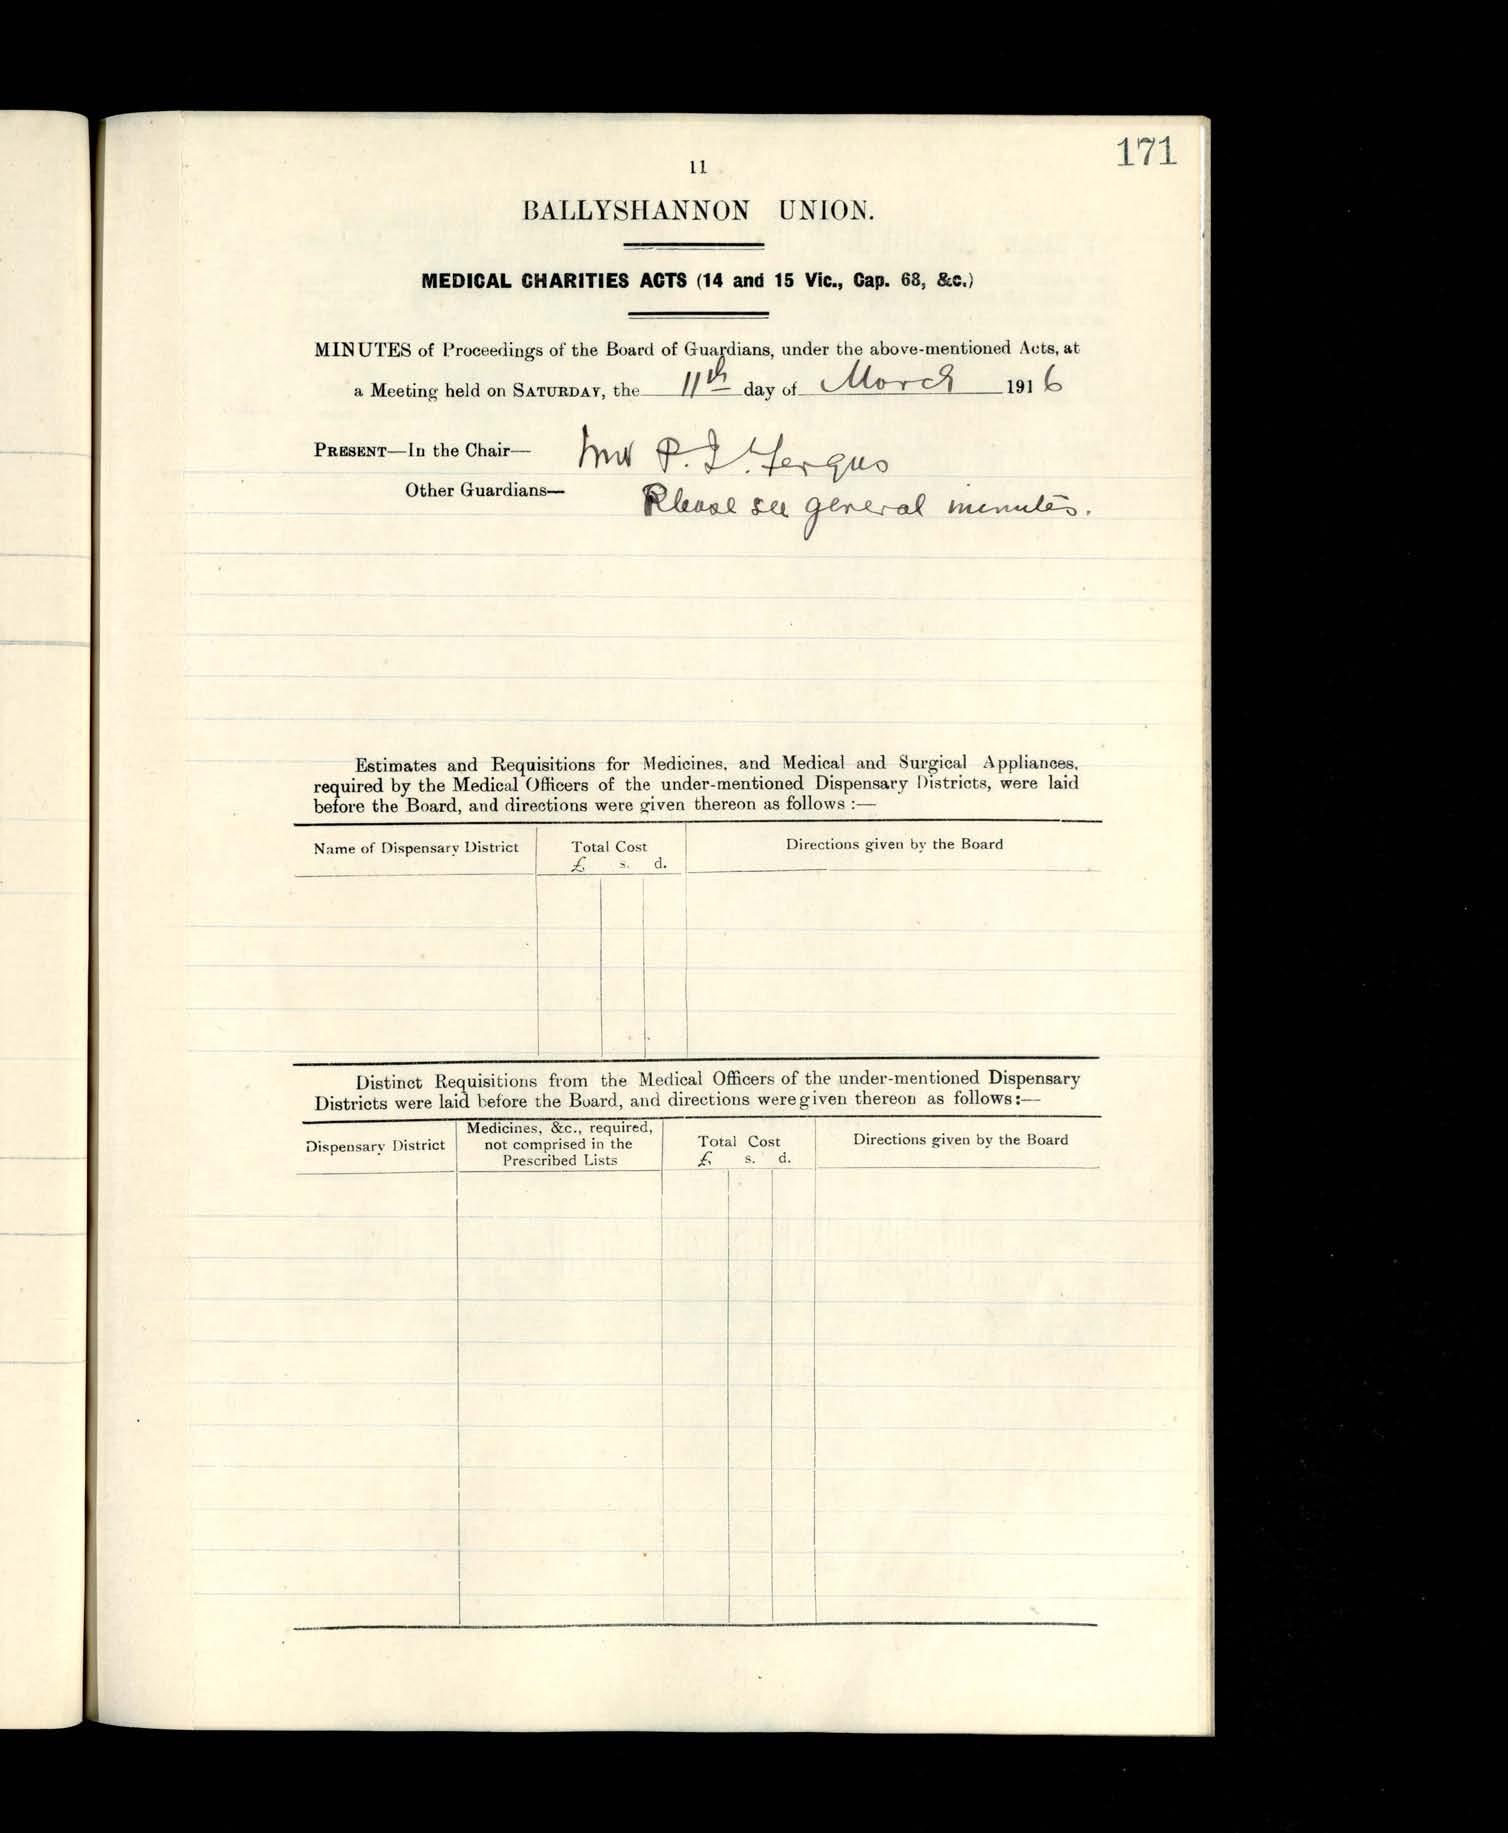 171
11
BALLYSHANNON UNION.
MEDICAL CHARITIES ACTS (14 and 15 Vic., Cap. 68, &c.)
MINUTES of Proceedings of the Board of Guardians, under the above-mentioned Acts, at
a Meeting held on SATURDAY, the 11th day of March 1916
PRESENT—In the Chair— P. J. Fergus
Other Guardians— Please see general minutes.
Estimates and Requisitions for Medicines, and Medical and Surgical Appliances,
required by the Medical Officers of the under-mentioned Dispensary Districts, were laid
before the Board, and directions were given thereon as follows :—
Name of Dispensary District Total Cost Directions given by the Board
£ s. d.
Distinct Requisitions from the Medical Officers of the under-mentioned Dispensary
Districts were laid before the Board, and directions were given thereon as follows:—
Dispensary District
Medicines, &c., required,
not comprised in the
Prescribed Lists
Total Cost
£ s. d.
Directions given by the Board